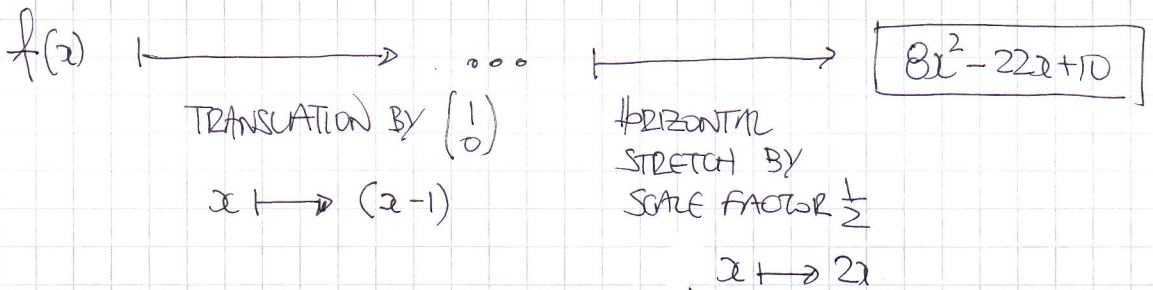 f(x) ⟼ ... ⟼ 8x² - 22x + 10
TRANSLATION BY (1 0)
HORIZONTAL
STRETCH BY
SCALE FACTOR 1/2
x ⟼ (x-1)
x ⟼ 2x